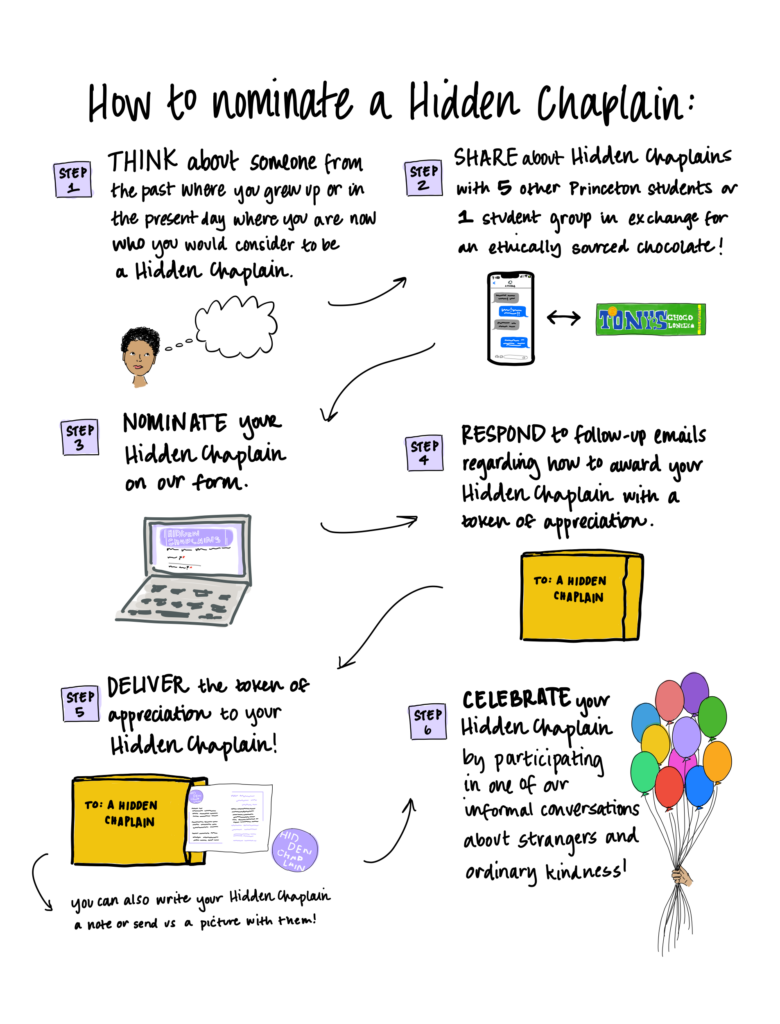 How to nominate a Hidden Chaplain:
STEP
1
THINK about someone from
the past where you grew up or in
the present day where you are now
who you would consider to be
a Hidden Chaplain.
STEP
2
SHARE about Hidden Chaplains
with 5 other Princeton students or
1 student group in exchange for
an ethically sourced chocolate!
TONY'S
CHOCO
LONELY
STEP
3
NOMINATE your
Hidden Chaplain
on our form.
HIDDEN
CHAPLAINS
STEP
4
RESPOND to follow-up emails
regarding how to award your
Hidden Chaplain with a
token of appreciation.
TO: A HIDDEN
CHAPLAIN
STEP
5
DELIVER the token of
appreciation to your
Hidden Chaplain!
TO: A HIDDEN
CHAPLAIN
HID
DEN
CHAP
LAIN
you can also write your Hidden Chaplain
a note or send us a picture with them!
STEP
6
CELEBRATE your
Hidden Chaplain
by participating
in one of our
informal conversations
about strangers and
ordinary kindness!